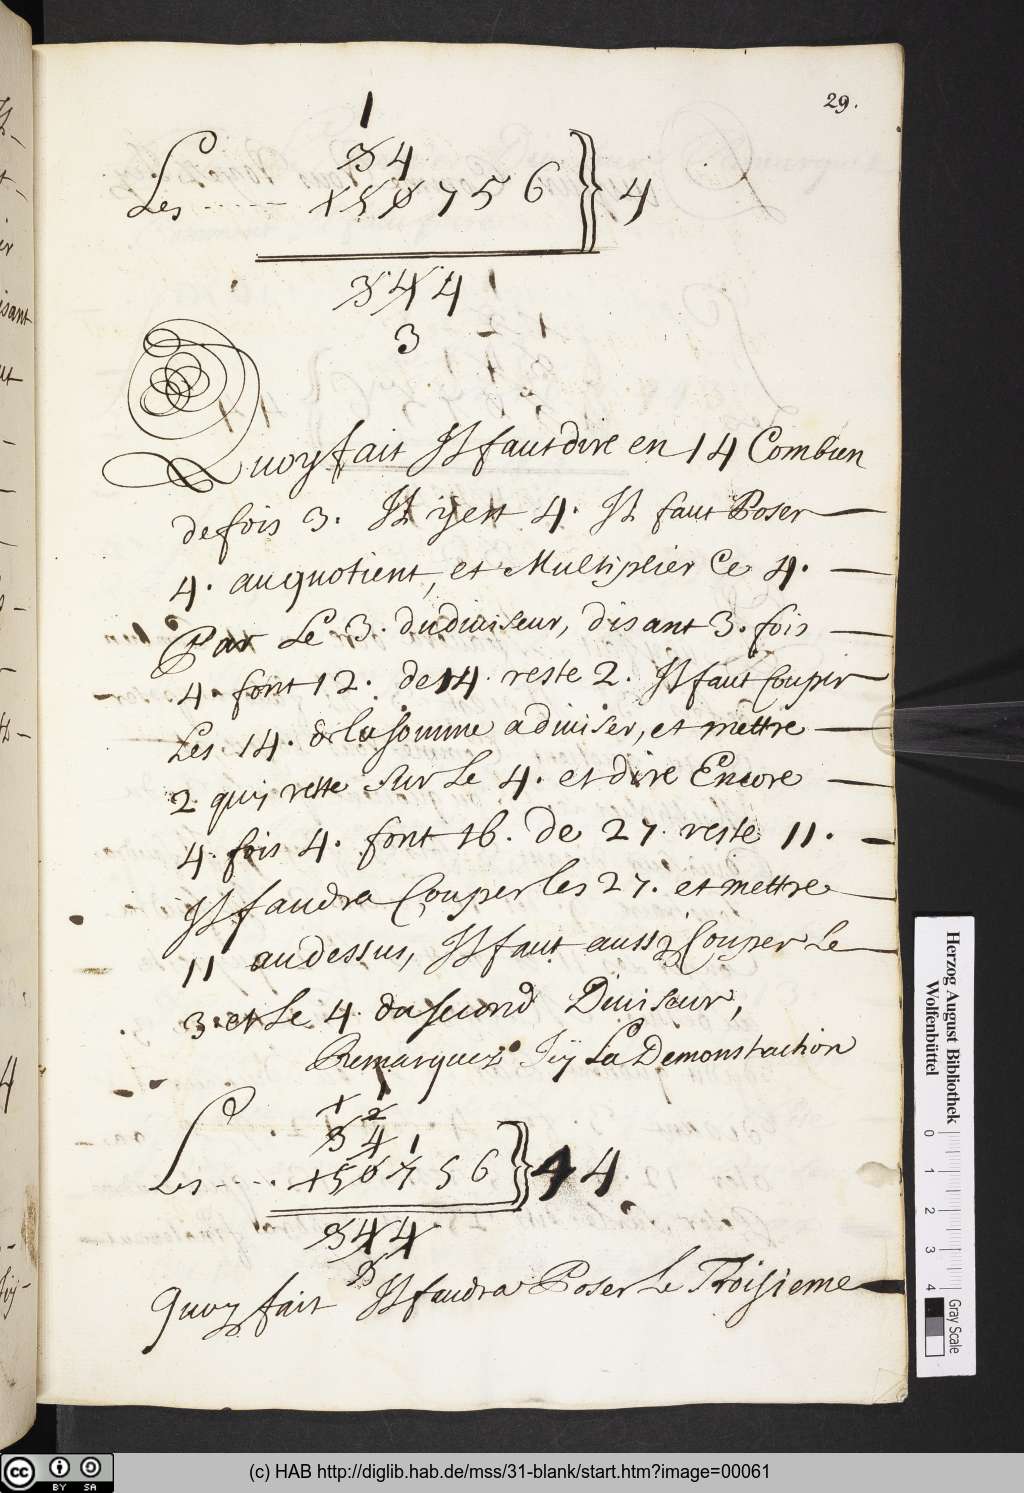 29.
1
3 4
Les ----- 1 5 0 7 5 6 } 4
3 4 4
3
Quoy fait Il faut dire en 14 Combien
de fois 3. Il y en 4. Il faut Poser
4. au quotient, et Multiplier Ce 4.
Par Le 3. du diuiseur, disant 3. fois
4. font 12. de 14. reste 2. Il faut Couper
Les 14. de la somme a diuiser, et mettre
2 quy reste sur Le 4. et dire Encore
4. fois 4. font 16. de 27. reste 11.
Il faudra Couper les 27. et mettre
11 au dessus, Il faut aussy Couper Le
3. et Le 4. du second Diuiseur,
Remarquez Icy La Demonstration
1 1
1 2
3 4 1
Les ---- 1 5 0 7 5 6 } 4 4.
3 4 4
3
Quoy fait Il faudra Poser Le Troisieme
Herzog August Bibliothek
Wolfenbüttel
0 1 2 3 4 Gray Scale
cc BY SA
(c) HAB http://diglib.hab.de/mss/31-blank/start.htm?image=00061